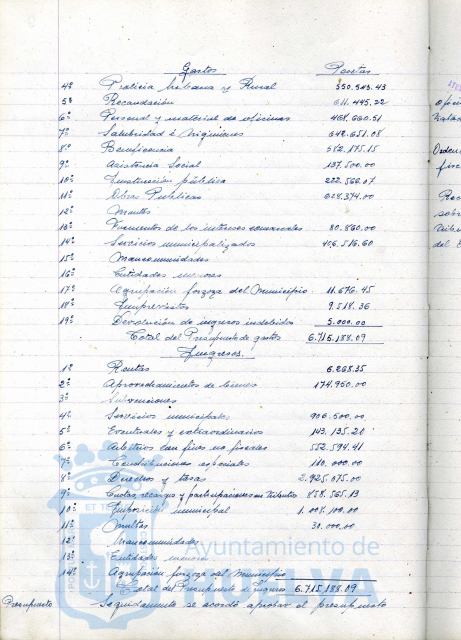 Gastos Pesetas
4º Policia Urbana y Rural 550.503.43
5º Recaudación 611.445.22
6º Personal y material de oficinas 468.660.51
7º Salubridad é Higiene 642.651.08
8º Beneficencia 582.175.15
9º Asistencia Social 137.500.00
10º Instrucción pública 222.566.07
11º Obras Publicas 628.374.00
12º Montes
13º Fomento de los intereses comunales 80.860.00
14º Servicios municipalizados 406.516.60
15º Mancomunidades
16º Entidades menores
17º Agrupación forzoza del Municipio 11.676.45
18º Imprevistos 9.518.36
19º Devolución de ingresos indebidos 5.000.00
Total del Presupuesto de gastos 6.715.188.09
Ingresos.
1º Rentas 6.268.35
2º Aprovechamientos de bienes 174.950.00
3º Subvenciones
4º Servicios municipales 906.500.00
5º Eventuales y extraordinarios 143.135.20
6º Arbitrios con fines no fiscales 552.594.41
7º Contribuciones especiales 110.000.00
8º Derechos y tasas 2.925.075.00
9º Cuotas, recargos y participaciones en tributos 858.565.13
10º Imposición municipal 1.008.100.00
11º Multas 30.000.00
12º Mancomunidades
13º Entidades menores
14º Agrupación forzoza del Municipio
Total del Presupuesto de Ingresos 6.715.188.09
Presupuesto Seguidamente se acordó aprobar el presupuesto
Ayuntamiento de
HUELVA